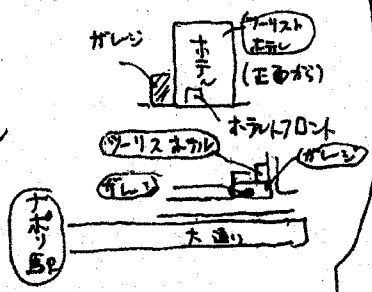 ガレージ
ホテル
ツーリスト
ホテル
(正面から)
ホテルフロント
ツーリスホテル
ガレージ
ガレージ
ナポリ駅
大通り